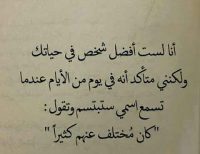 أنا لست أفضل شخص في حياتك
ولكنني متأكد أنه في يوم من الأيام عندما
تسمع اسمي ستبتسم وتقول :
"كان مُختلف عنهم كثيراً"